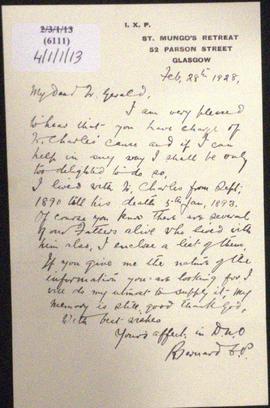 2/3/1/13
(6111)
4/1/1/13
I. X. P.
ST. MUNGO'S RETREAT
52 PARSON STREET
GLASGOW
Feb. 28th 1928.
My Dear Fr. Gerald.
I am very pleased
to hear that you have charge of
Fr. Charles' cause and if I can
help in any way I shall be only
too delighted to do so,
I lived with Fr. Charles from Sept:
1890 till his death 5th Jan, 1893.
Of course you know there are several
of our Fathers alive who lived with
him also, I enclose a list of them,
If you give me the nature of the
information you are looking for I
will do my utmost to supply it. My
memory is still good thank God,
With best wishes
Yours affect. in
Bernard C.P.